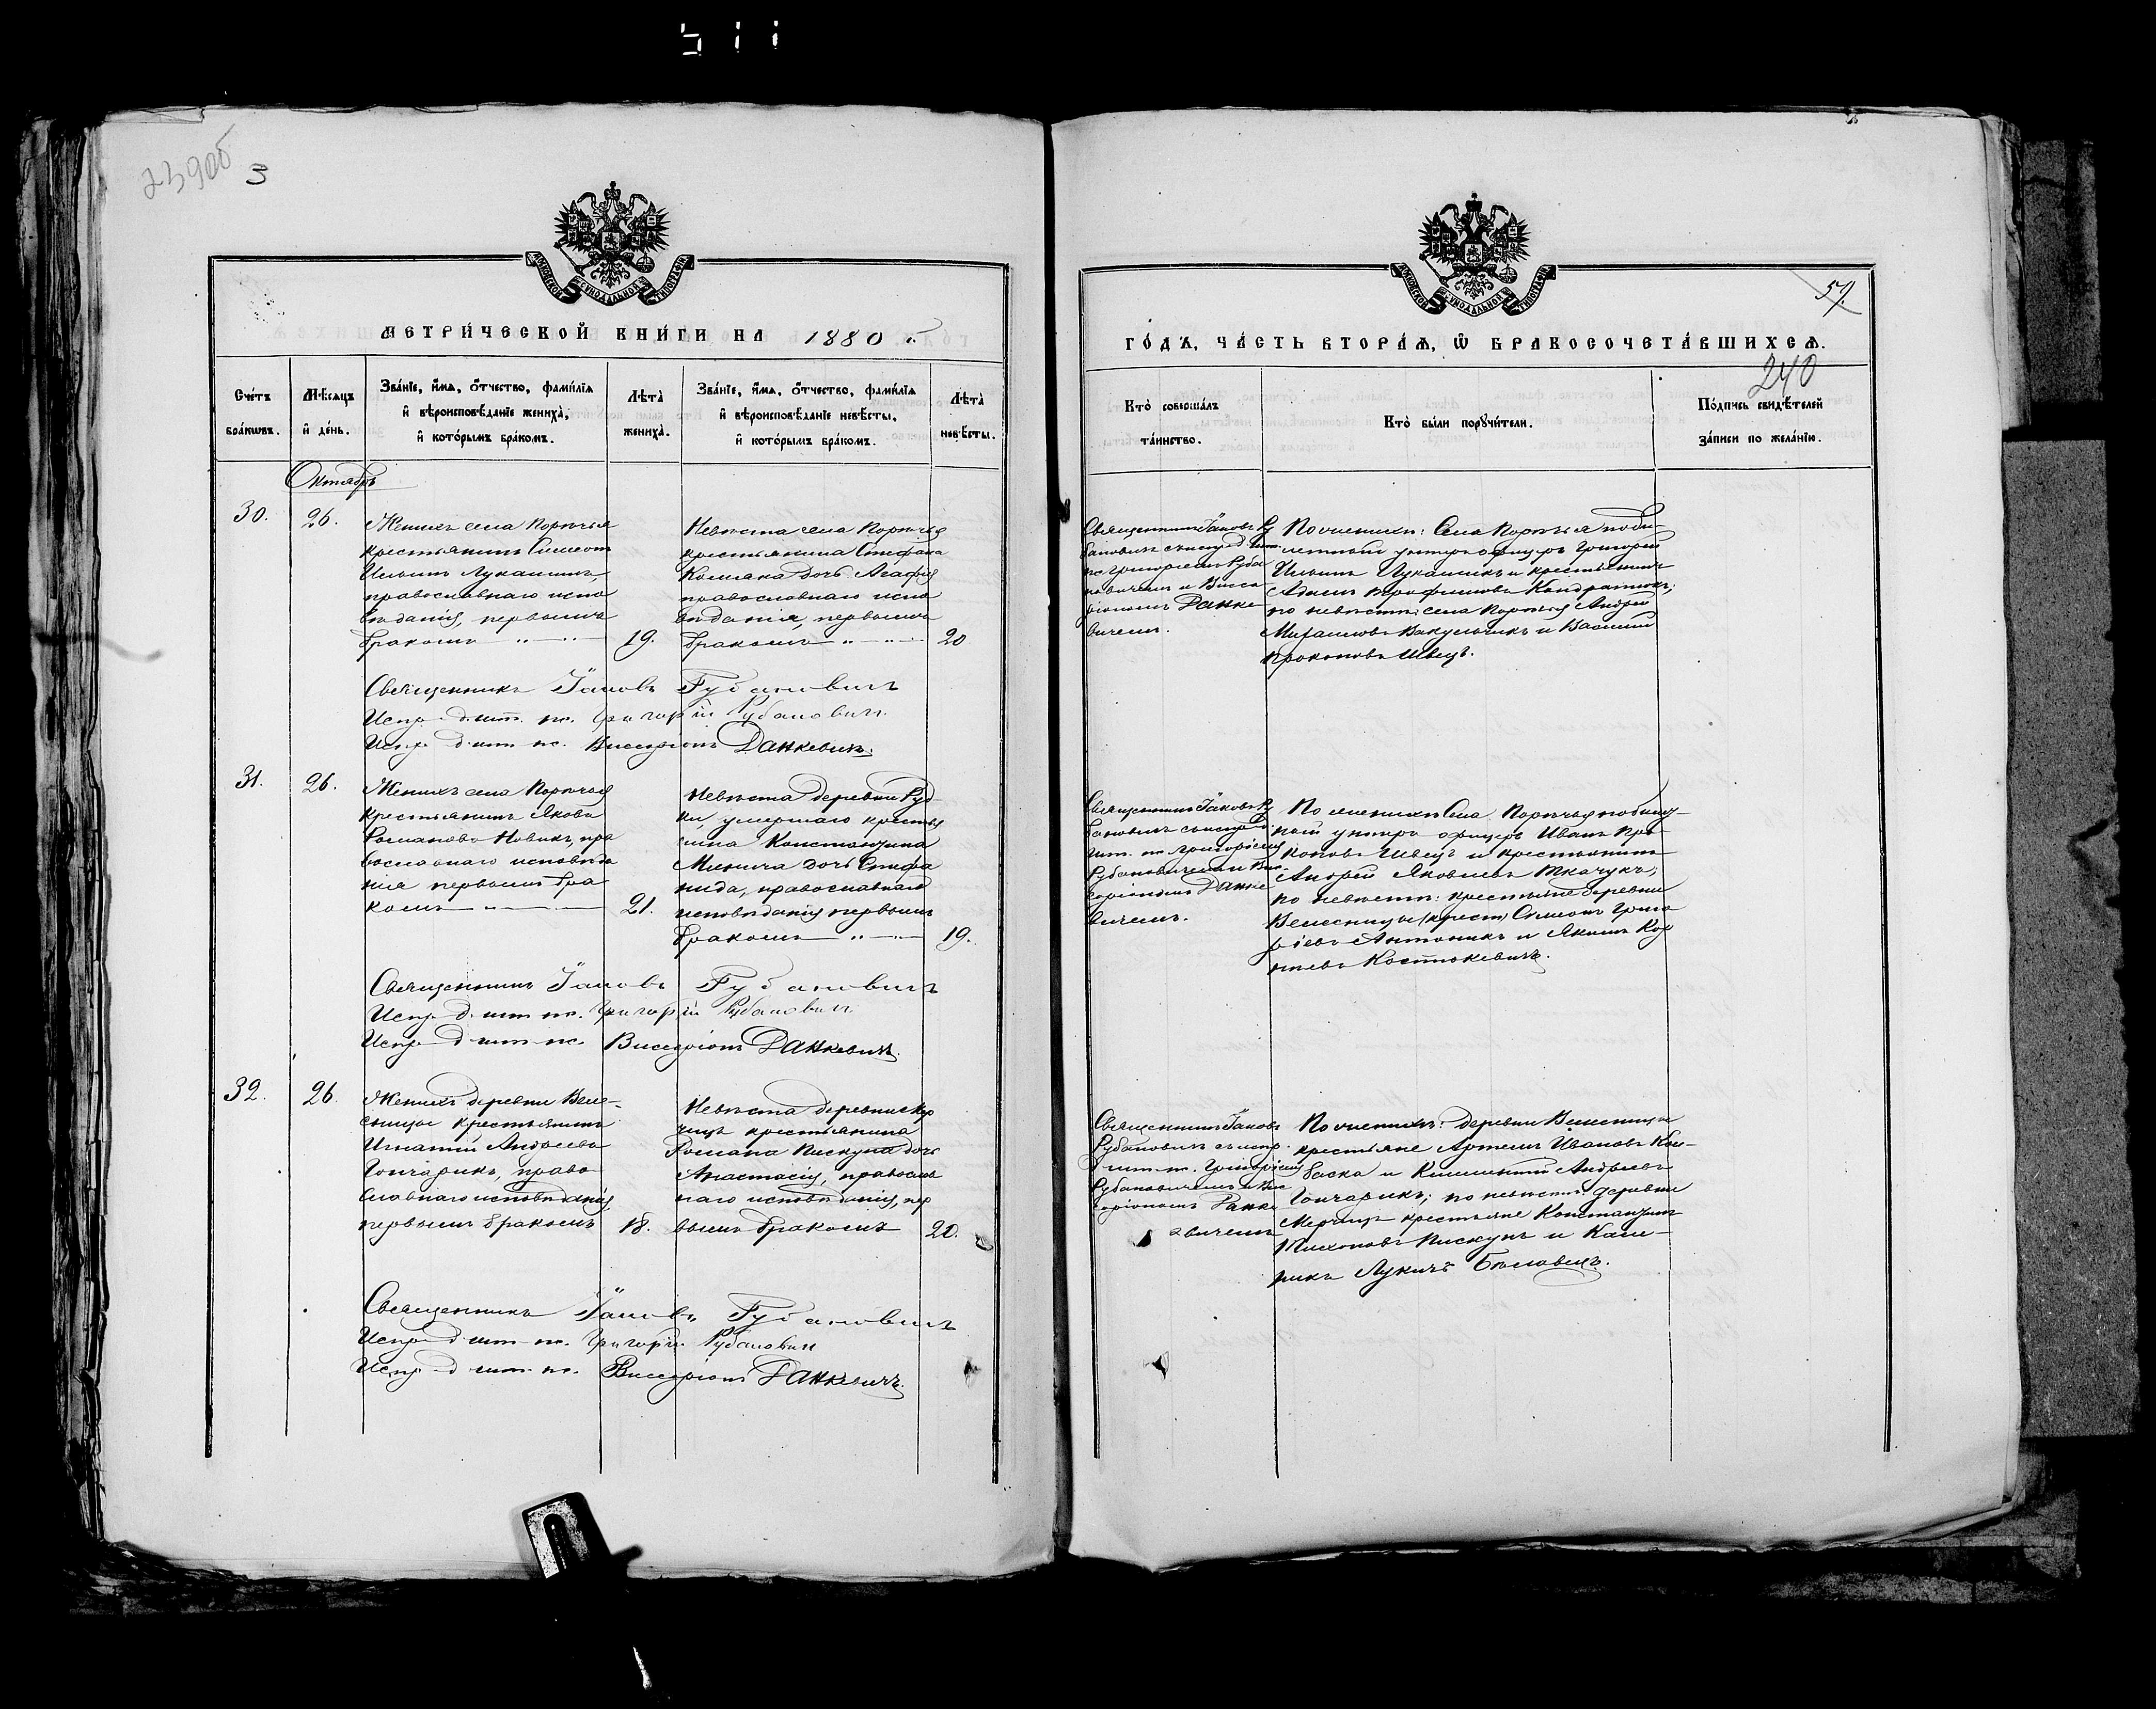 511
239об
3
МОСКОВСКОЙ СѴНОДАЛЬНОЙ ТИПОГРАФІИ
МЕТРИ́ЧЕСКОЙ КНИ́ГИ НА 1880 г.
Сче́тъ бра́кѡвъ.
Мѣ́сѧцъ и҆ де́нь.
Зва́нїе, и҆́мѧ, ѻ҆́тчество, фами́лїѧ и҆ вѣроисповѣ́данїе жениха̀, и҆ кото́рымъ бра́комъ.
Лѣ́та жениха̀.
Зва́нїе, и҆́мѧ, ѻ҆́тчество, фами́лїѧ и҆ вѣроисповѣ́данїе невѣ́сты, и҆ кото́рымъ бра́комъ.
Лѣ́та невѣ́сты.
Октябрь
30.
26.
Женихъ села Порѣчья
крестьянинъ Симеонъ
Ильинъ Лукашикъ,
православнаго испо
вѣданія, первымъ
бракомъ
19.
Невѣста села Порѣчья
крестьянина Стефана
дочь Агафія
православнаго испо
вѣданія, первымъ
бракомъ
20
Священникъ Іаковъ Рубановичъ
Испр. д. пс. Григорій Рубановичъ
Испр. д. пс. Виссаріонъ Данкевичъ.
31.
26.
Женихъ села Порѣчья
крестьянинъ Яковъ
Романовъ Новикъ, пра
вославнаго исповѣда
нія первымъ бра
комъ
21.
Невѣста деревни Руд-
ки, умершаго крестья
нина Константина
Минича дочь Стефа
нида, православнаго
исповѣданія первымъ
бракомъ
19.
Священникъ Іаковъ Рубановичъ
Испр. д. пс. Григорій Рубановичъ
Испр. д. пс. Виссаріонъ Данкевичъ.
32.
26.
Женихъ деревни Веле-
сницы крестьянинъ
Игнатій Андреевъ
Гончарикъ, право
славнаго исповѣданія,
первымъ бракомъ
18.
Невѣста деревни Мер
чицъ крестьянина
Романа Пискуна дочь
Анастасія, православ
наго исповѣданія, пер
вымъ бракомъ
20.
Священникъ Іаковъ Рубановичъ
Испр. д. пс. Григорій Рубановичъ
Испр. д. пс. Виссаріонъ Данкевичъ.
МОСКОВСКОЙ СѴНОДАЛЬНОЙ ТИПОГРАФІИ
57.
ГО́ДЪ, ЧА́СТЬ ВТОРА́Ѧ, Ѡ҆ БРАКОСОЧЕТА́ВШИХСѦ.
240
Кто̀ соверша́лъ та́инство.
Кто̀ бы́ли порꙋчи́тели.
По́дпись свидѣ́телей за́писи по жела́нїю.
Священникъ Іаковъ Ру
бановичъ съ испр. д.
пс. Григоріемъ Руба
новичемъ и Висса
ріономъ Данке
вичемъ.
По женихѣ: Села Порѣчья
унтеръ офицеръ Григорій
Ильинъ Лукашикъ и крестьянинъ
Адамъ Кондратюкъ;
по невѣстѣ: села Порѣчья Андрей
Вакульчикъ и Василій
Прокоповъ Швецъ.
Священникъ Іаковъ Ру
бановичъ съ испр. д.
пс. Григоріемъ
Рубановичемъ и Вис
саріономъ Данке
вичемъ.
По женихѣ: Села Порѣчья
унтеръ офицеръ Иванъ Про-
коповъ Швецъ и крестьянинъ
Андрей Яковлевъ Ткачукъ;
по невѣстѣ: крестьяне деревни
Велесницы (крест) Симеонъ Григо
ріевъ Антоникъ и Якимъ Кор
нѣевъ Костюкевичъ.
Священникъ Іаковъ
Рубановичъ съ испр.
д. пс. Григоріемъ
Рубановичемъ и Вис
саріономъ Данке
вичемъ
По женихѣ: деревни Велесницы
крестьяне Артемъ Ивановъ Кол-
баска и Климентій Андреевъ
Гончарикъ; по невѣстѣ: деревни
Мерчицъ крестьяне Константинъ
Пискунъ и
Лукичъ